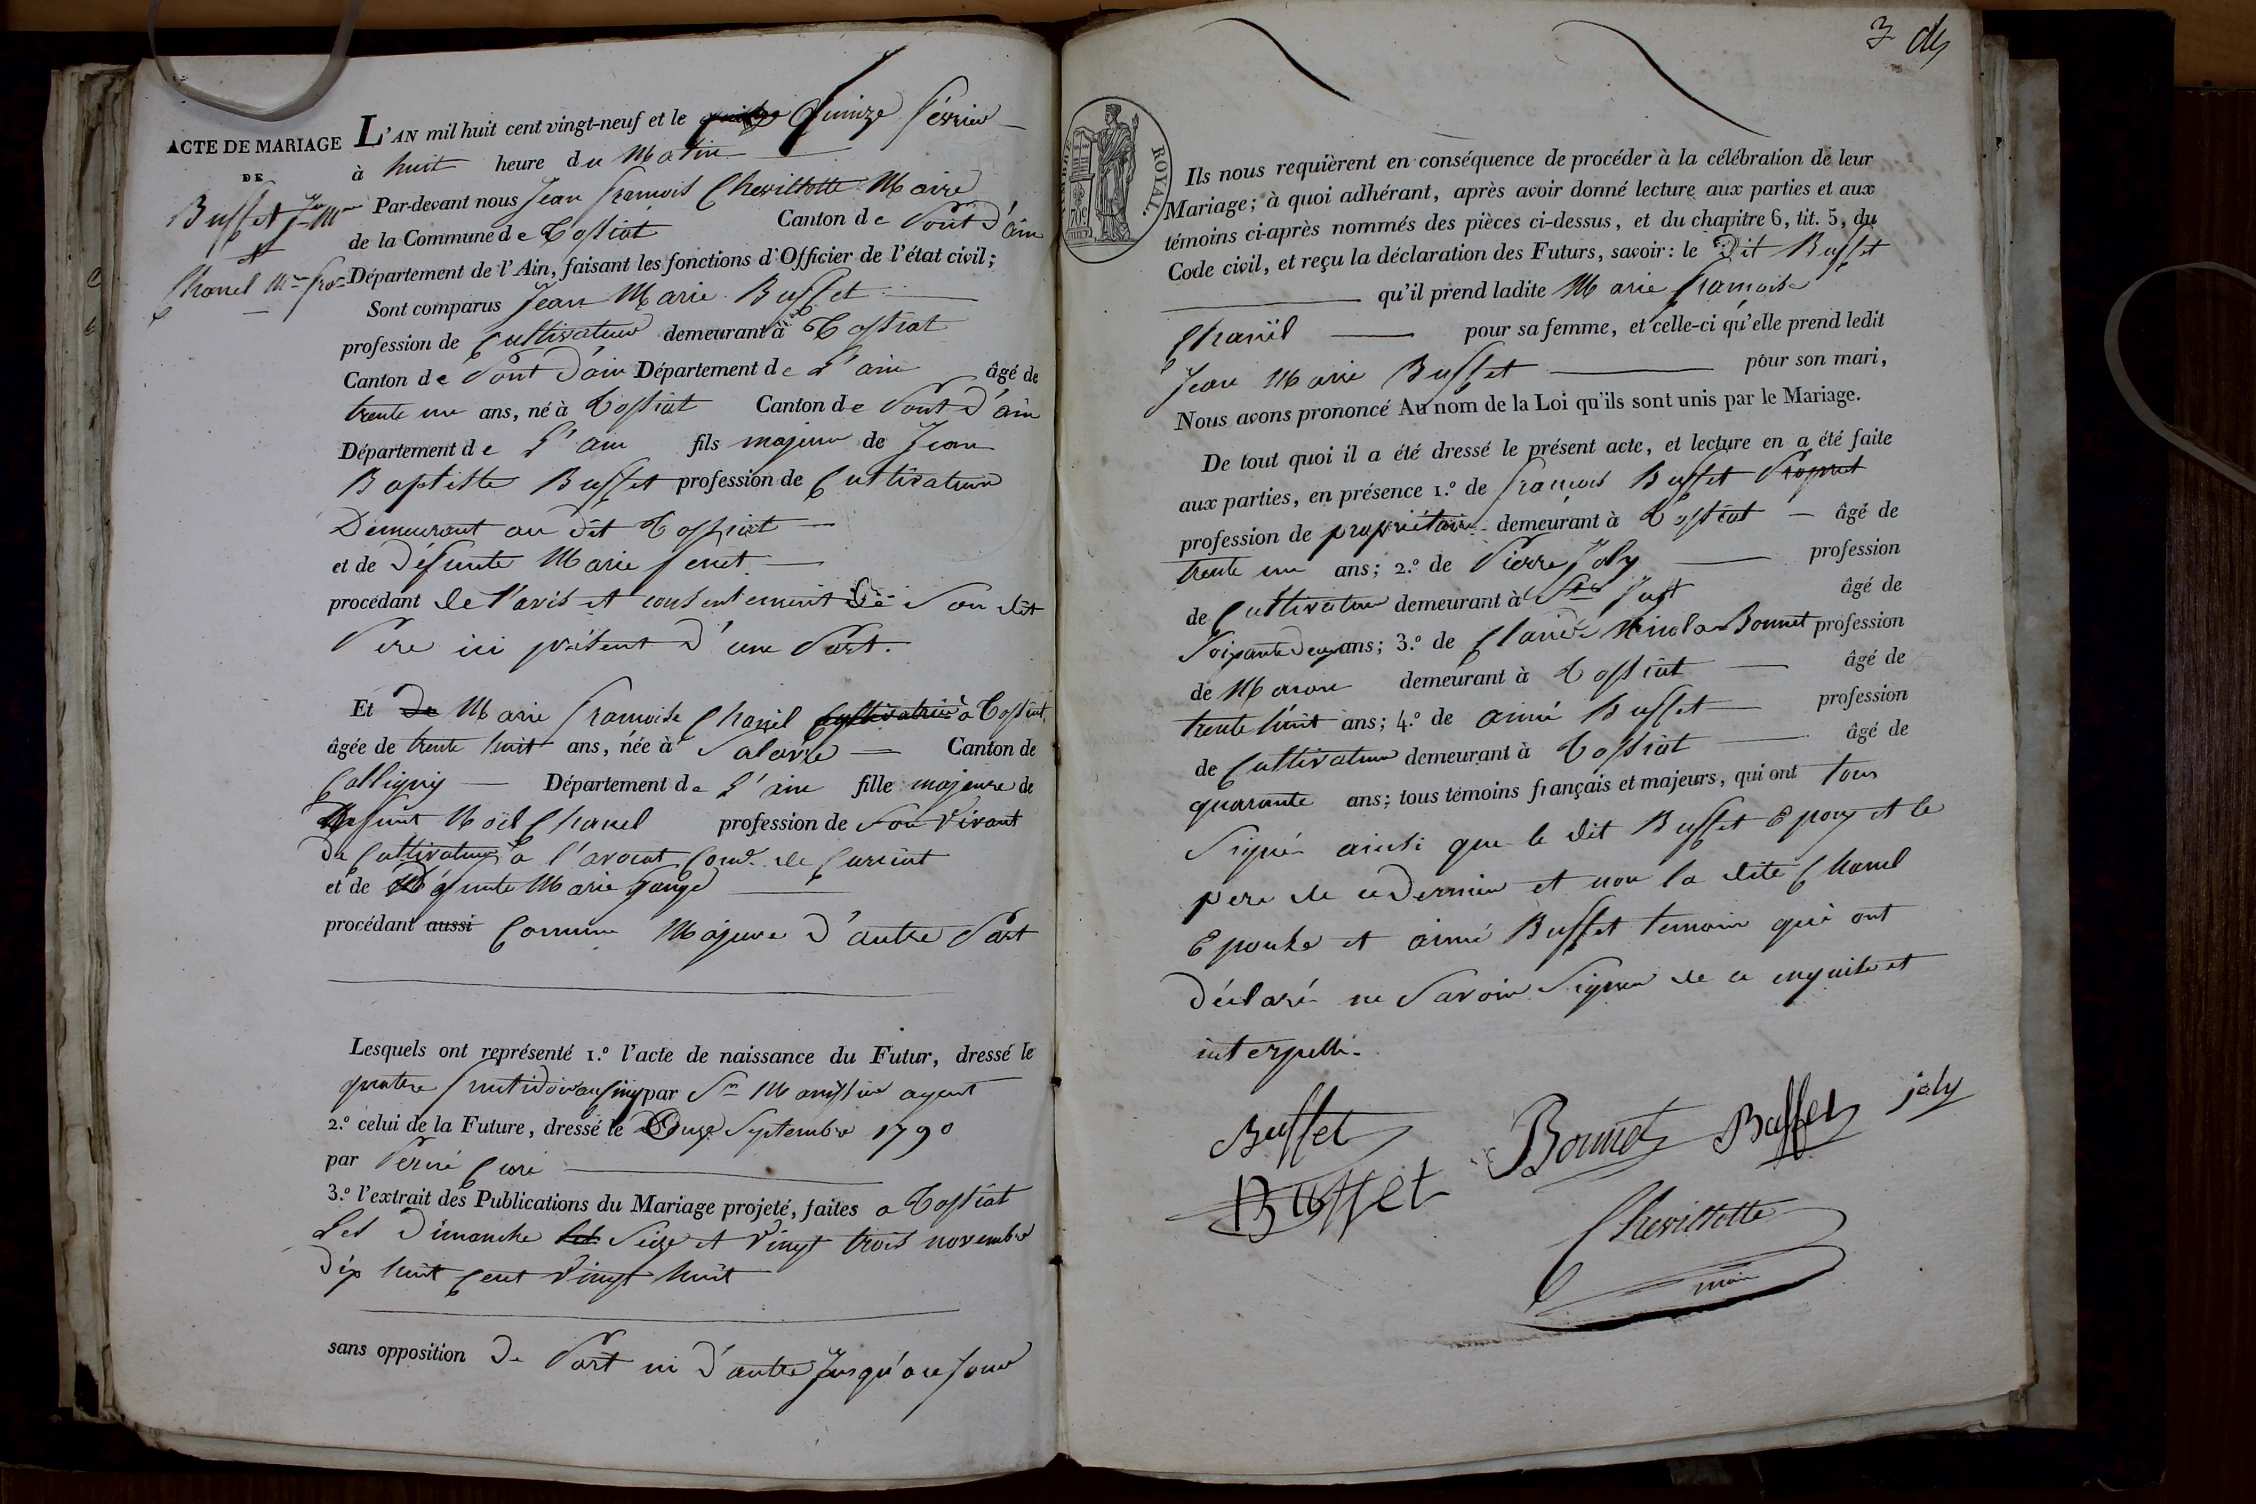 ACTE DE MARIAGE
DE
Buffet Jn Mie
et
Chanel Mie Fse
L'AN mil huit cent vingt-neuf et le quinze février
à huit heure du Matin
Par-devant nous Jean francois Chevillotte Maire
de la Commune de Tossiat Canton de Pont d'ain
Département de l'Ain, faisant les fonctions d'Officier de l'état civil;
Sont comparus Jean Marie Buffet
profession de Cultivateur demeurant à Tossiat
Canton de Pont d'ain Département de L'ain âgé de
trente un ans, né à Tossiat Canton de Pont d'ain
Département de L'ain fils majeur de Jean
Baptiste Buffet profession de Cultivateur
Demeurant au dit Tossiat
et de défunte Marie feret
procédant de l'avis et consentement de Son dit
Pere ici présent d'une Part.
Et de Marie francoise Chanel Cultivatrice à Tossiat
âgée de trente huit ans, née à Salavre Canton de
Colligny Département de L'ain fille majeure de
Defunt Noël Chanel profession de Son vivant
de Cultivateur a l'avocat Come de Cursiat
et de Défunte Marie
procédant aussi Comme Majeure d'autre Part
Lesquels ont représenté 1.º l'acte de naissance du Futur, dressé le
quatre fructidor an cinq par Sr agent
2.º celui de la Future, dressé le Septembre 1790
par Curé
3.º l'extrait des Publications du Mariage projeté, faites a Tossiat
Les Dimanche les Seize et vingt trois novembre
dix huit Cent vingt huit
sans opposition de Part ni d'autre Jusqu'a ce Jour
3 
ROYAL.
Ils nous requièrent en conséquence de procéder à la célébration de leur
Mariage; à quoi adhérant, après avoir donné lecture aux parties et aux
témoins ci-après nommés des pièces ci-dessus, et du chapitre 6, tit. 5, du
Code civil, et reçu la déclaration des Futurs, savoir: le dit Buffet
qu'il prend ladite Marie francoise
Chanel pour sa femme, et celle-ci qu'elle prend ledit
Jean Marie Buffet pour son mari,
Nous avons prononcé Au nom de la Loi qu'ils sont unis par le Mariage.
De tout quoi il a été dressé le présent acte, et lecture en a été faite
aux parties, en présence 1.º de francois Buffet
profession de propriétaire demeurant à Tossiat âgé de
trente un ans; 2.º de Pierre Joly profession
de Cultivateur demeurant à St Just âgé de
Soixante deux ans; 3.º de Claude Nicolas Bonnet profession
de Macon demeurant à Tossiat âgé de
trente huit ans; 4.º de aimé Buffet profession
de Cultivateur demeurant à Tossiat âgé de
quarante ans; tous témoins français et majeurs, qui ont tous
Signé ainsi que le dit Buffet Epoux et le
pere de ce dernier et non la dite Chanel
Epouse et aimé Buffet temoin qui ont
déclaré ne Savoir Signer de ce enquis et
interpellé.
Buffet
Bonnet
Buffet
joly
Buffet
Chevillotte
maire